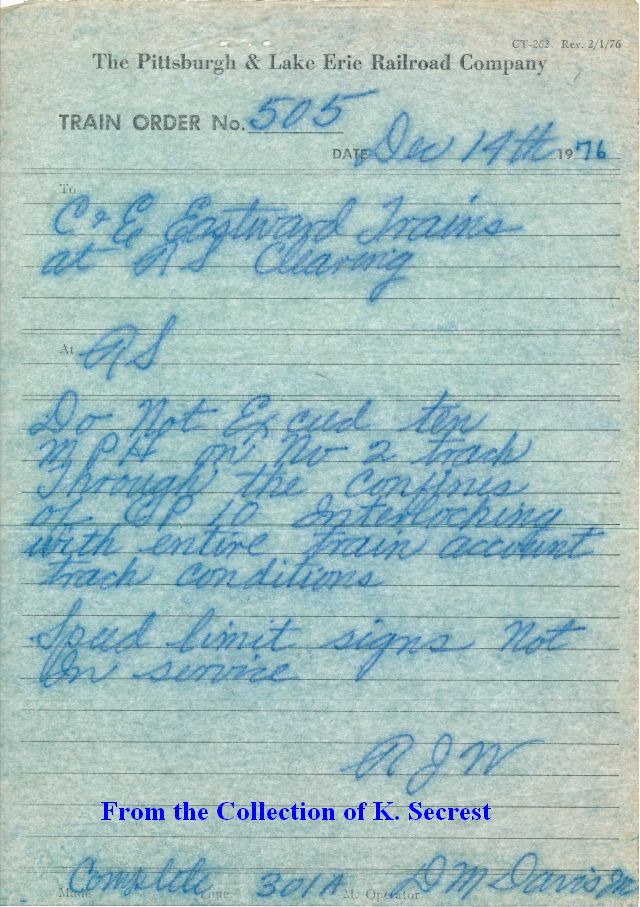 CT-262 Rev. 2/1/76
The Pittsburgh & Lake Erie Railroad Company
TRAIN ORDER No. 505
DATE Dec 14th 1976
To
C & E Eastward Trains
at RS Clearing
At RS
Do Not Exceed ten
MPH on No 2 track
Through the confines
of CP 10 Interlocking
with entire train account
track conditions
Speed limit signs Not
In service
RJW
From the Collection of K. Secrest
Made Complete Time 301A M. Operator D M Davis